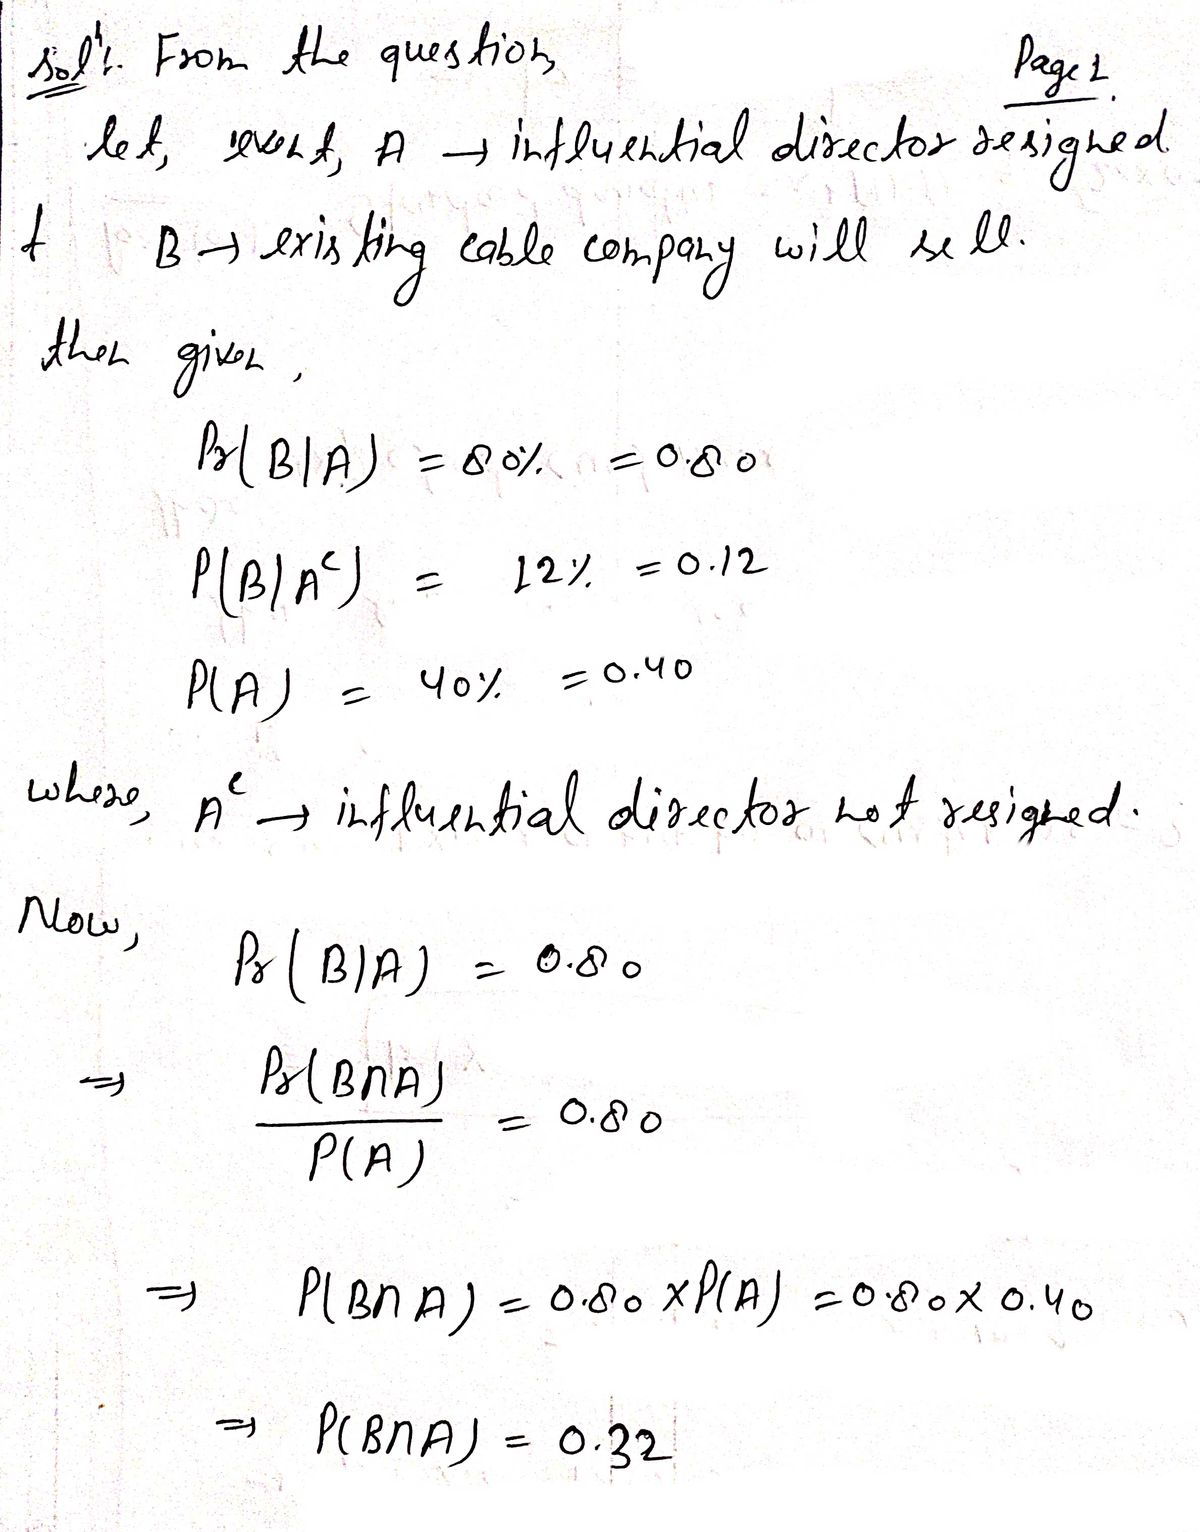 Solⁿ:. From the question,
Page 1.
let, event, A → influential director resigned
& B → existing cable company will sell.
then given,
Pr(B|A) = 80% = 0.80
P(B|Aᶜ) = 12% = 0.12
P(A) = 40% = 0.40
where, Aᶜ → influential director not resigned.
Now,
Pr(B|A) = 0.80
⇒ Pr(B∩A)
P(A)
= 0.80
⇒ P(B∩A) = 0.80 × P(A) = 0.80 × 0.40
⇒ P(B∩A) = 0.32